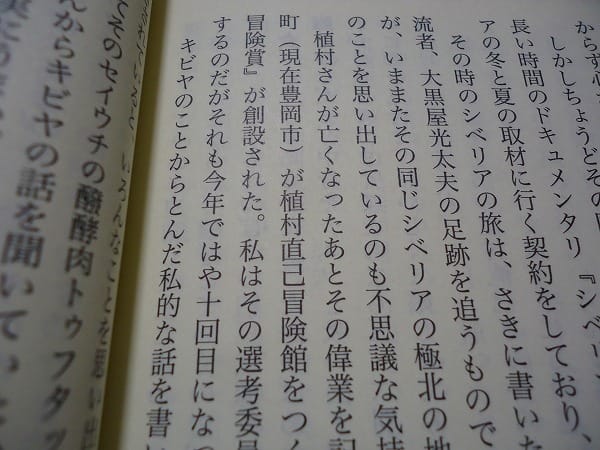 からず心
しかしちょうどその
長い時間のドキュメンタリ『シベリ
アの冬と夏の取材に行く契約をしており、
その時のシベリアの旅は、さきに書いた
流者、大黒屋光太夫の足跡を追うもので
が、いままたその同じシベリアの極北の地
のことを思い出しているのも不思議な気持
植村さんが亡くなったあとその偉業を記
町（現在豊岡市）が植村直己冒険館をつく
冒険賞』が創設された。私はその選考委員
するのだがそれも今年ではや十回目になっ
キビヤのことからとんだ私的な話を書い
いろんなことを思い出
てそのセイウチの醗酵肉トゥフタッ
んからキビヤの話を聞いていた